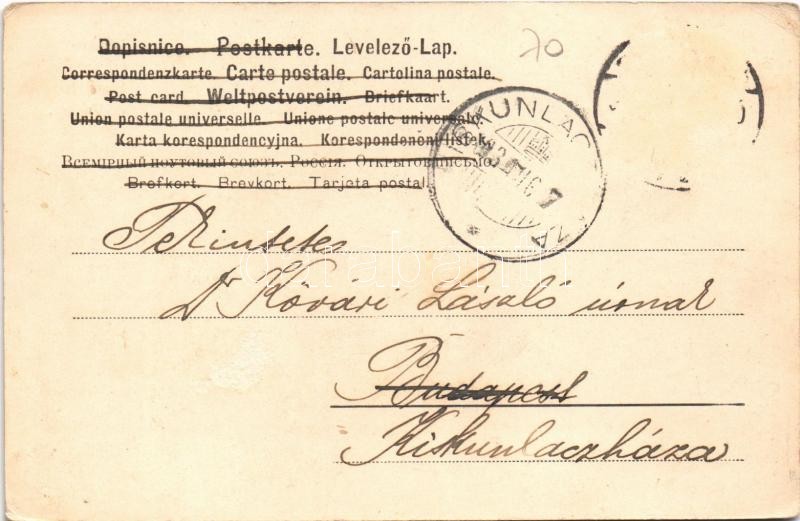 Dopisnice. Postkarte. Levelező-Lap.
Correspondenzkarte. Carte postale. Cartolina postale.
Post card. Weltpostverein. Briefkaart.
Union postale universelle. Unione postale universale.
Karta korespondencyjna. Korespondenční listek.
Всемірный почтовый союзъ. Россія. Открытое письмо.
Brefkort. Brevkort. Tarjeta postal.
70
KISKUNLAC
ZA
Tekintetes
Dr Kővári László úrnak
Budapest
Kiskunlaczháza
darabanth